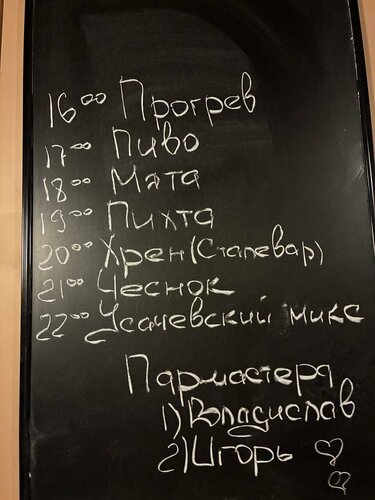 16⁰⁰ Прогрев
17⁰⁰ Пиво
18⁰⁰ Мята
19⁰⁰ Пихта
20⁰⁰ Хрен (Сталевар)
21⁰⁰ Чеснок
22⁰⁰ Усачевский микс
Пармастера
1) Владислав
2) Игорь